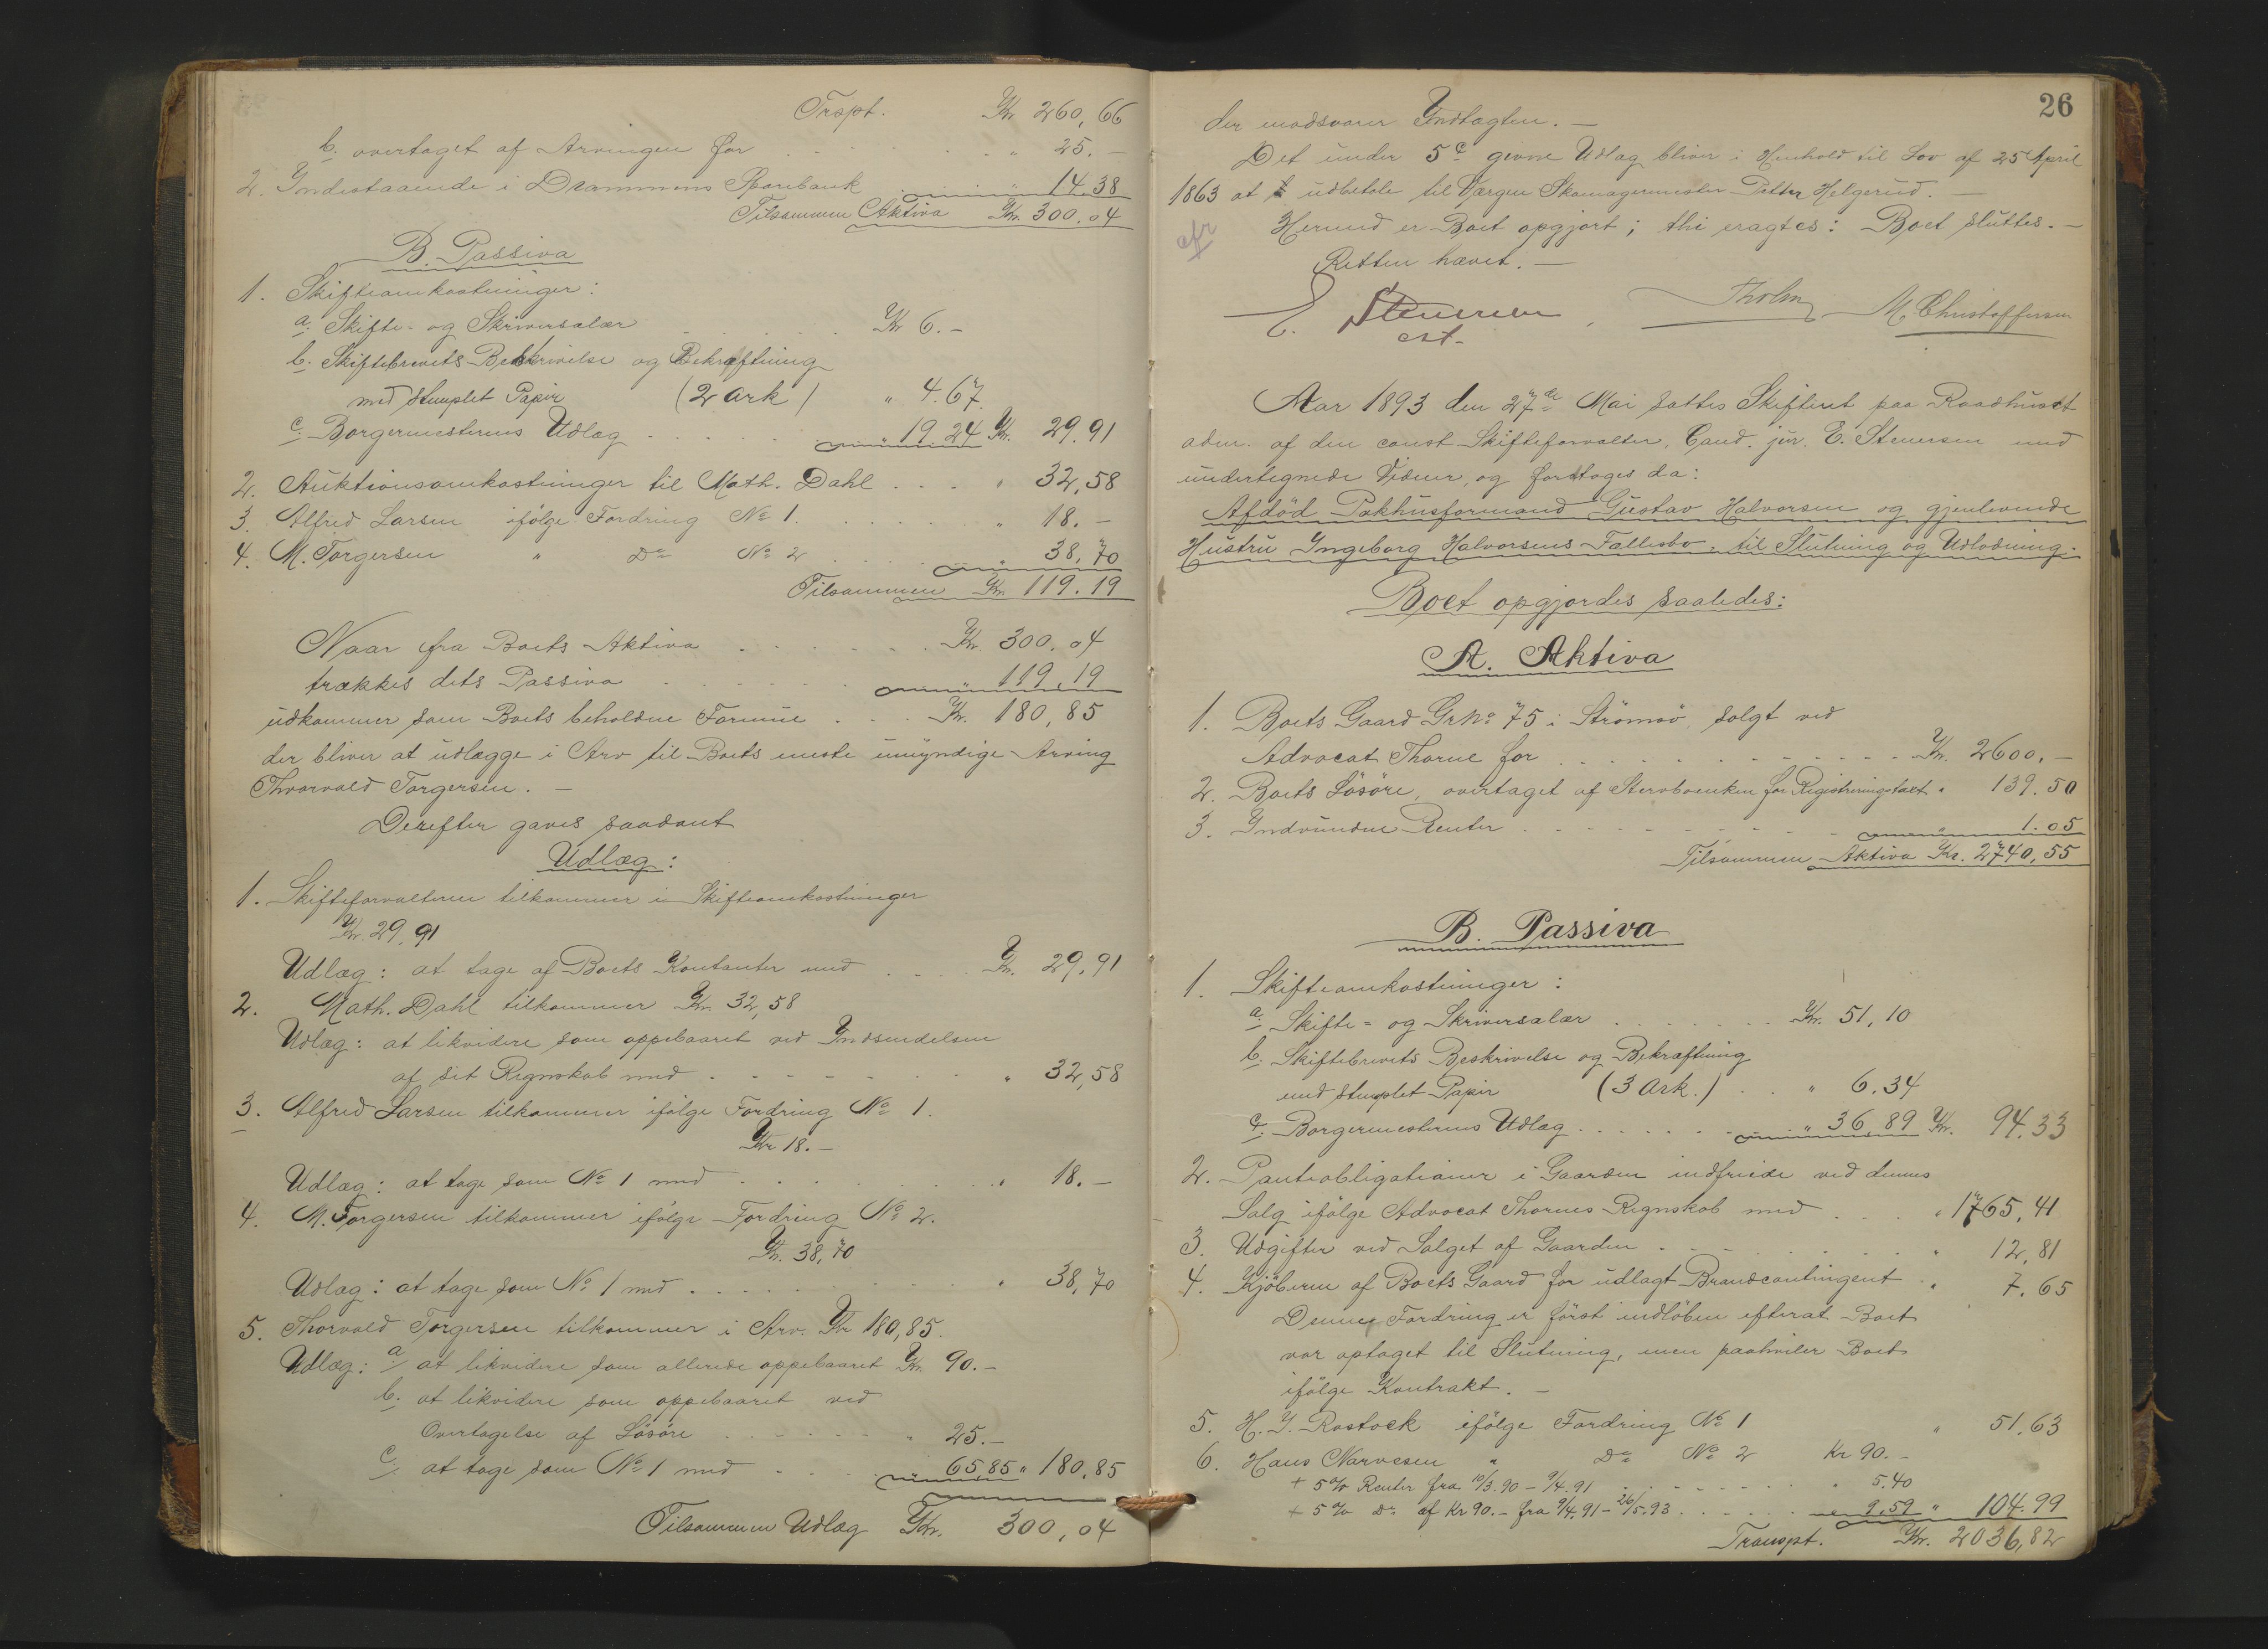 Trspt. Kr. 260,66
b. overtaget af Arvingen for . . . " 25.-
2. Indestaaende i Drammens Sparebank " 14.38
Tilsammen Aktiva Kr. 300.04
B. Passiva
1. Skifteomkostninger:
a. Skifte- og Skriversalær . . . Kr 6.-
b. Skiftebrevets Beskrivelse og Bekræftning
med stemplet Papir (2 Ark) " 4.67
c. Borgermesterens Udlæg . . . " 19.24 Kr. 29.91
2. Auktionsomkostninger til Math. Dahl . . . " 32,58
3. Alfred Larsen ifølge Fordring No 1 . . . " 18.-
4. M. Torgersen " Do No 2 . . . " 38,70
Tilsammen Kr. 119.19
Naar fra Boets Aktiva . . . Kr. 300.04
trækkes dets Passiva . . . " 119,19
udkommer som Boets beholdne Formue . . . Kr. 180,85
der bliver at udlægge i Arv til Boets eneste umyndige Arving
Thorvald Torgersen. -
Derefter gaves saadant
Udlæg:
1. Skifteforvalteren tilkommer i Skifteomkostninger
Kr. 29,91
Udlæg: at tage af Boets Kontanter med . . . Kr. 29,91
2. Math. Dahl tilkommer Kr. 32,58
Udlæg: at likvidere som oppebaaret ved Indsendelsen
af sit Regnskab med . . . " 32,58
3. Alfred Larsen tilkommer ifølge Fordring No 1.
Kr 18.-
Udlæg: at tage som No 1 med . . . " 18.-
4. M. Torgersen tilkommer ifølge Fordring No 2.
Kr. 38,70
Udlæg: at tage som No 1 med . . . " 38,70
5. Thorvald Torgersen tilkommer i Arv Kr 180,85.
Udlæg: a/ at likvidere som allerede oppebaaret Kr. 90.-
b. at likvidere som oppebaaret ved
Overtagelse af Løsøre . . . " 25.-
c. at tage som No 1 med . . . " 65,85 " 180,85
Tilsammen Udlæg Kr. 300,04
26
der modsvarer Indtægten. -
Det under 5c givne Udlæg bliver i Henhold til Lov af 25 April
1863 at udbetale til Værgen Skomagermester Petter Helgerud. -
cfr
Hermed er Boet opgjort; thi eragtes: Boet sluttes. -
Retten hævet. -
E. Stenersen
cst.
Tholm M. Christoffersen
Aar 1893 den 27de Mai sattes Skifteret paa Raadhuset
adm. af den const Skifteforvalter, Cand. jur. E. Stenersen med
undertegnede Vidner, og foretoges da:
Afdød Pakhusformand Gustav Halvorsen og gjenlevende
Hustru Ingeborg Halvorsens Fællesbo, til Slutning og Udlodning.
Boet opgjordes saaledes:
A. Aktiva
1. Boets Gaard Grno 75 i Strømsø, solgt ved
Advocat Thorne for . . . Kr. 2600.-
2. Boets Løsøre, overtaget af Stervboenken for Registreringstaxt " 139.50
3. Indvundne Renter . . . " 1.05
Tilsammen Aktiva Kr. 2740,55
B. Passiva
1. Skifteomkostninger:
a. Skifte- og Skriversalær . . . Kr. 51,10
b. Skiftebrevets Beskrivelse og Bekræftning
med stemplet Papir (3 Ark.) . . " 6.34
c. Borgermesterens Udlæg . . . " 36,89 Kr. 94.33
2. Panteobligationer i Gaarden indfriede ved dennes
Salg ifølge Advocat Thornes Regnskab med . . . " 1765,41
3. Udgifter ved Salget af Gaarden . . . " 12,81
4. Kjøberen af Boets Gaard for udlagt Brandcontingent . " 7.65
Denne Fordring er først indløben efterat Boet
var optaget til Slutning, men paahviler Boet
ifølge Kontrakt. -
5. H. J. Rostock ifølge Fordring No 1 " 51,63
6. Hans Narvesen " Do No 2 Kr 90.-
+ 5% Renter fra 10/3.90 - 9/4.91 . . . " 5.40
+ 5% Do af Kr 90.- fra 9/4.91 - 26/5.93 . . . " 9,59 " 104.99
Transpt. Kr. 2036,82